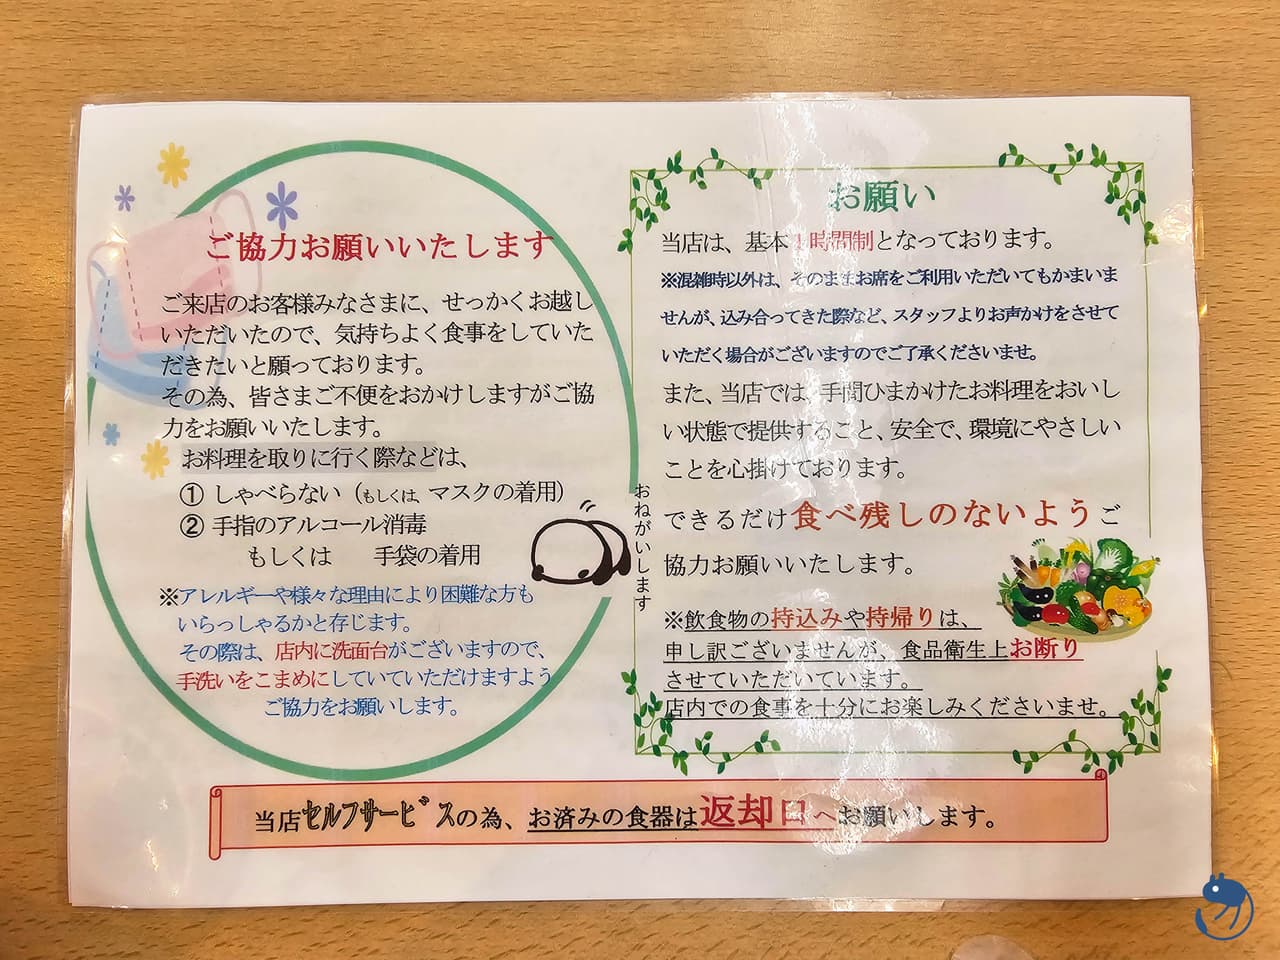 ご協力お願いいたします
ご来店のお客様みなさまに、せっかくお越し
いただいたので、気持ちよく食事をしていた
だきたいと願っております。
その為、皆さまご不便をおかけしますがご協
力をお願いいたします。
お料理を取りに行く際などは、
① しゃべらない（もしくは、マスクの着用）
② 手指のアルコール消毒
もしくは 手袋の着用
※アレルギーや様々な理由により困難な方も
いらっしゃるかと存じます。
その際は、店内に洗面台がございますので、
手洗いをこまめにしていていただけますよう
ご協力をお願いします。
おねがいします
お願い
当店は、基本1時間制となっております。
※混雑時以外は、そのままお席をご利用いただいてもかまいま
せんが、込み合ってきた際など、スタッフよりお声かけをさせて
いただく場合がございますのでご了承くださいませ。
また、当店では、手間ひまかけたお料理をおいし
い状態で提供すること、安全で、環境にやさしい
ことを心掛けております。
できるだけ食べ残しのないようご
協力お願いいたします。
※飲食物の持込みや持帰りは、
申し訳ございませんが、食品衛生上お断り
させていただいています。
店内での食事を十分にお楽しみくださいませ。
当店セルフサービスの為、お済みの食器は返却口へお願いします。